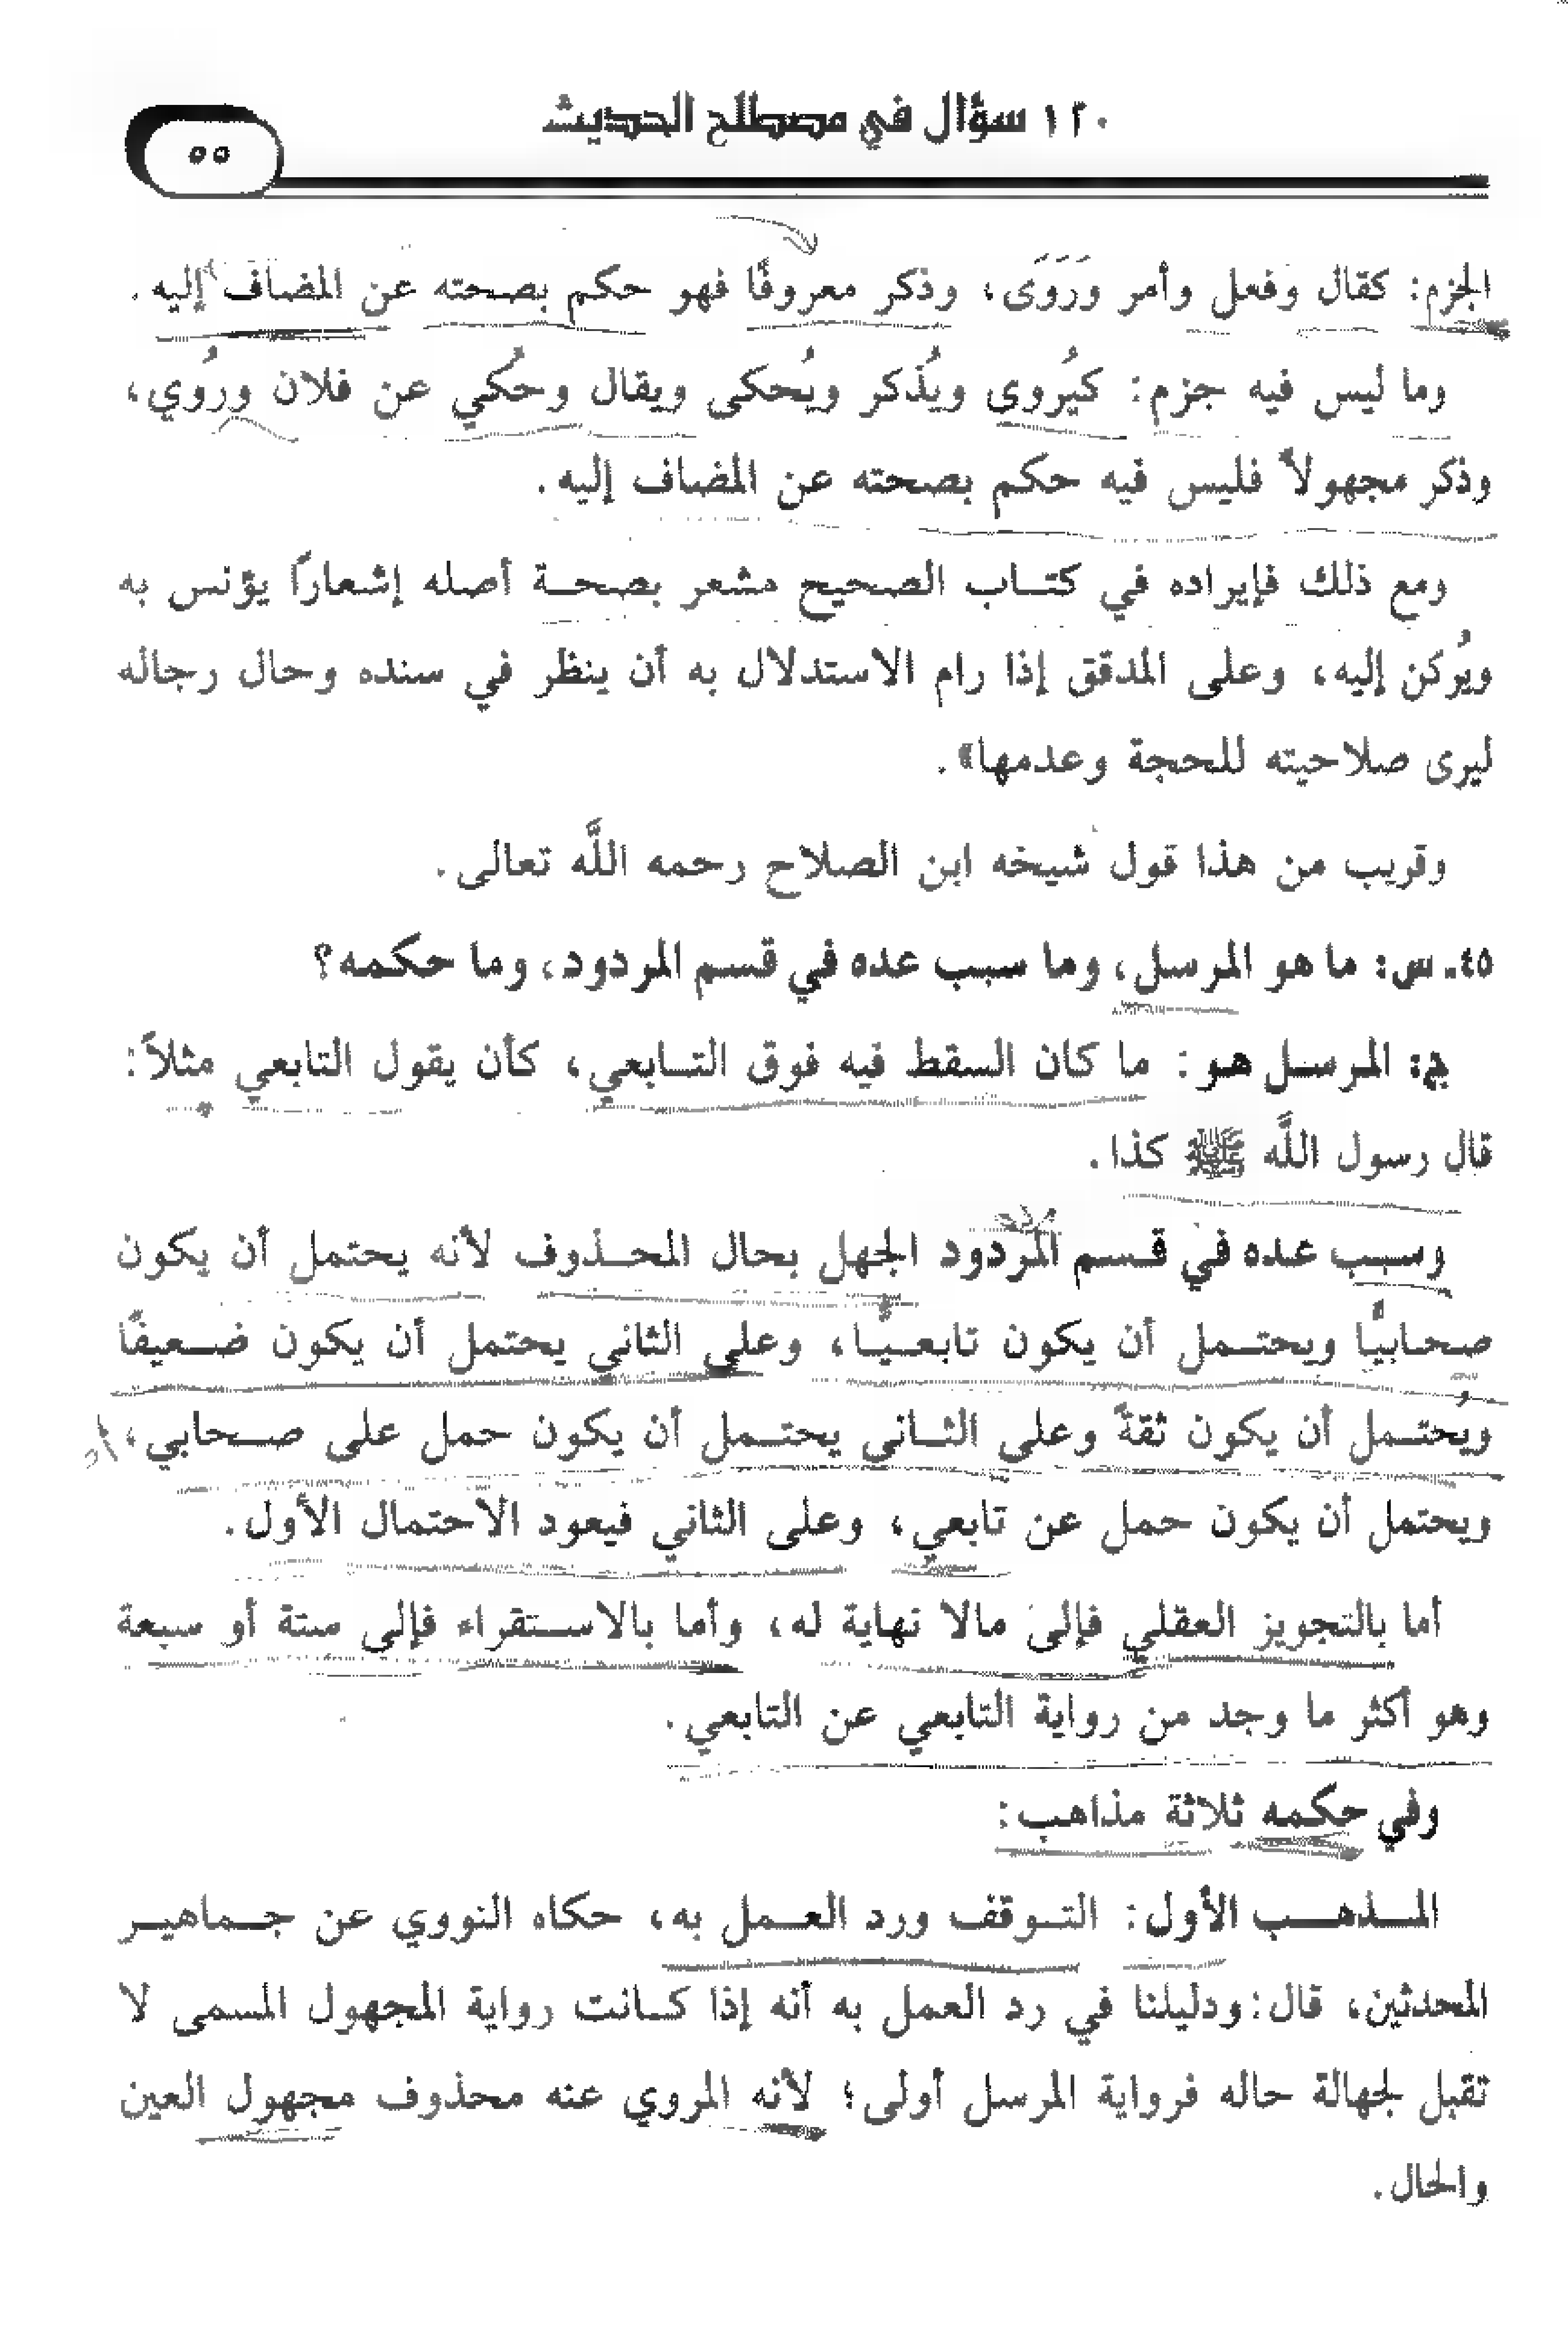 ١٢٠ سؤال في مصطلح الحديث
٥٥
الجزم: كقال وفعل وأمر ورَوَى، وذكر معروفًا فهو حكم بصحته عن المضاف إليه.
وما ليس فيه جزم: كيُروى ويُذكر ويُحكى ويقال وحُكي عن فلان ورُوي،
وذكر مجهولاً فليس فيه حكم بصحته عن المضاف إليه.
ومع ذلك فإيراده في كتـاب الصحيح مشعر بصحـة أصله إشعارًا يؤنس به
ويُركن إليه، وعلى المدقق إذا رام الاستدلال به أن ينظر في سنده وحال رجاله
ليرى صلاحيته للحجة وعدمها».
وقريب من هذا قول شيخه ابن الصلاح رحمه اللَّه تعالى.
٤٥ـ س: ما هو المرسل، وما سبب عده في قسم المردود، وما حكمه؟
ج: المرسل هو: ما كان السقط فيه فوق التـابعي، كأن يقول التابعي مثلاً:
قال رسول اللَّه ﷺ كذا.
وسبب عده في قـسم المردود الجهل بحال المحـذوف لأنه يحتمل أن يكون
صحابيًّا ويحتـمل أن يكون تابعـيًّـا، وعلى الثاني يحتمل أن يكون ضـعيفًا
ويُحتـمل أن يكون ثقةً وعلى الثـاني يحتـمل أن يكون حمل على صـحابي،
ويحتمل أن يكون حمل عن تابعي، وعلى الثاني فيعود الاحتمال الأول.
أما بالتجويز العقلي فإلى مالا نهاية له، وأما بالاسـتقراء فإلى ستة أو سبعة
وهو أكثر ما وجد من رواية التابعي عن التابعي.
وفي حكمه ثلاثة مذاهب:
المـذهـب الأول: التـوقف ورد العـمل به، حكاه النووي عن جـماهيـر
المحدثين، قال: ودليلنا في رد العمل به أنه إذا كـانت رواية المجهول المسمى لا
تقبل لجهالة حاله فرواية المرسل أولى؛ لأنه المروي عنه محذوف مجهول العين
والحال.